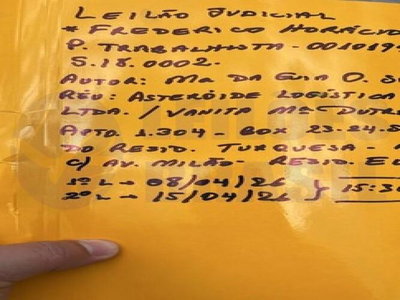 LEILÃO JUDICIAL
* FREDERICO HORÁCIO
P. TRABALHISTA - 001019
5.18.0002.
AUTOR: Mª DA GUIA O. S
RÉU: ASTERÓIDE LOGÍSTICA
LTDA. / VANITA Mª DUTRA
APTO 1.304 - BOX 23-24-5
DO RESID. TURQUESA -
C/ AV. MILÃO - RESID. EL
1º L → 08/04/26 } 15:30
2º L → 15/04/26